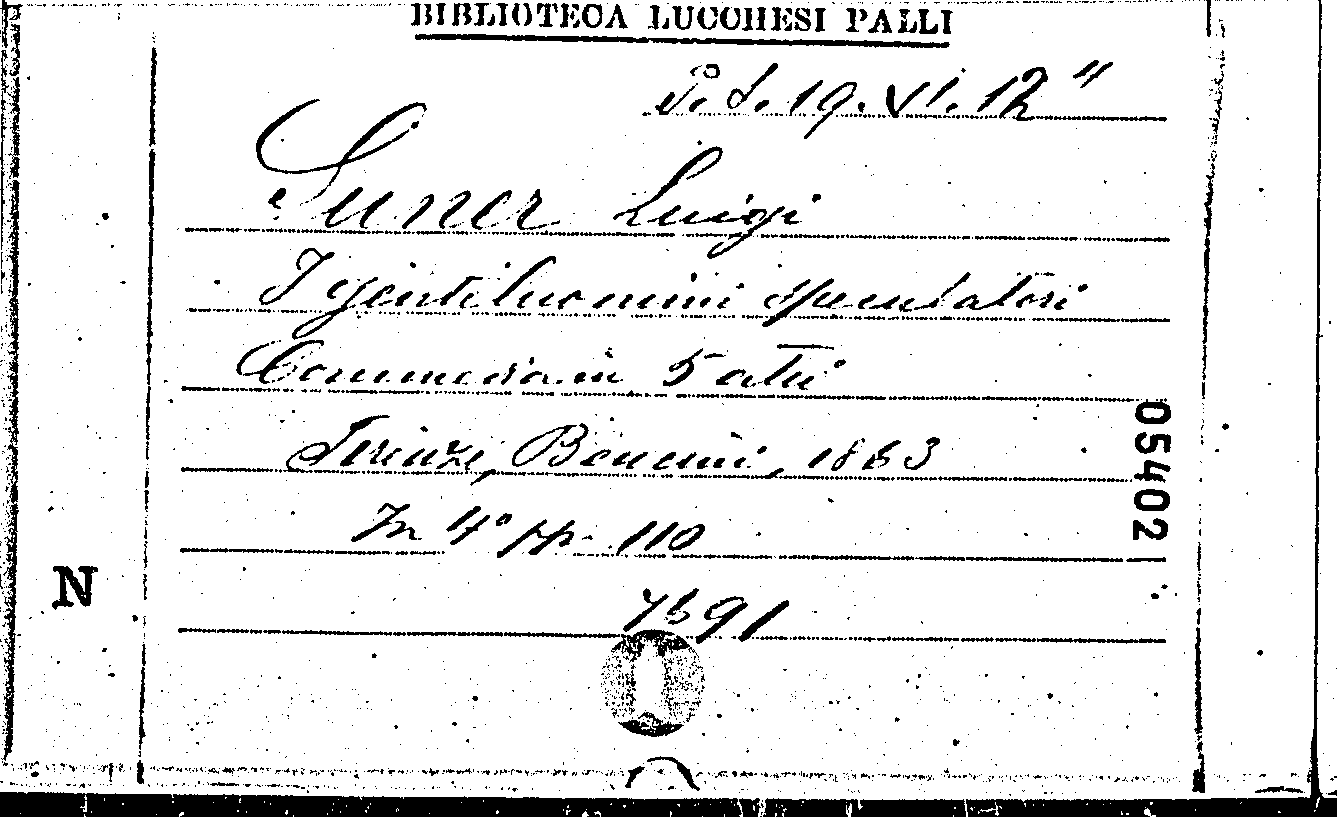 BIBLIOTECA LUCCHESI PALLI
P. S. 19. VI. 12 "
Suner Luigi
I gentiluomini speculatori
Commedia in 5 atti
Firenze, Bencini, 1863
In 4° pp. 110
7591
05402
N